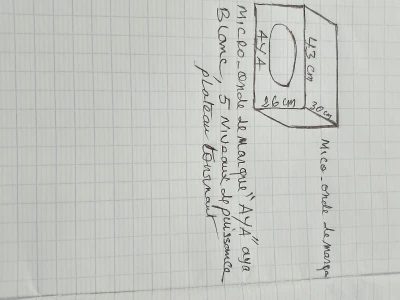 Mico-onde de marqu
43 cm
30 cm
26 cm
AYA
Micro-onde de Marque "AYA" aya
Blanc, 5 Niveaux de puissance
plateau tournant